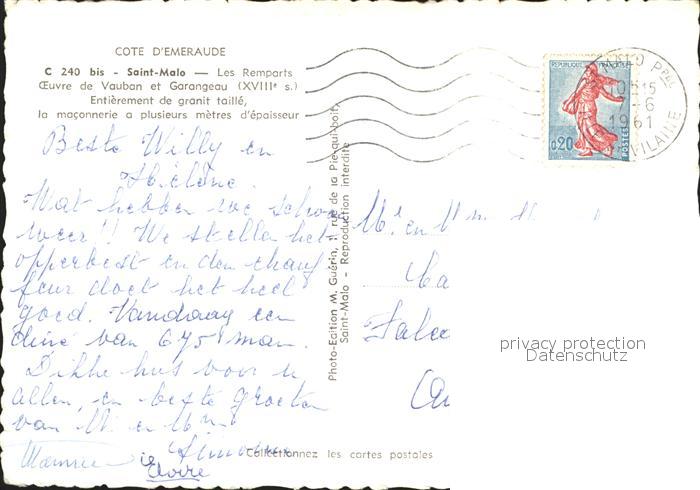 COTE D'EMERAUDE
C 240 bis - Saint-Malo — Les Remparts
Œuvre de Vauban et Garangeau (XVIIIe s.)
Entièrement de granit taillé,
la maçonnerie a plusieurs mètres d'épaisseur
Beste Willy en
Hélène.
Wat hebben we schoon
weer!! We stellen het
opperbest en den chauf
feur doet het heel
goed. Vandaag een
diné van 675 man.
Dikke kus voor u
allen, en beste groeten
van Mr en Mme
Simonne
Maurice
Photo-Edition M. Guérin, 11 rue de la Pie-qui-boit,
Saint-Malo - Reproduction interdite
Collectionnez les cartes postales
REPUBLIQUE FRANÇAISE
0,20
POSTES
PPAL
10H15
7-6
1961
VILAINE
Mr en Mme
privacy protection
Datenschutz